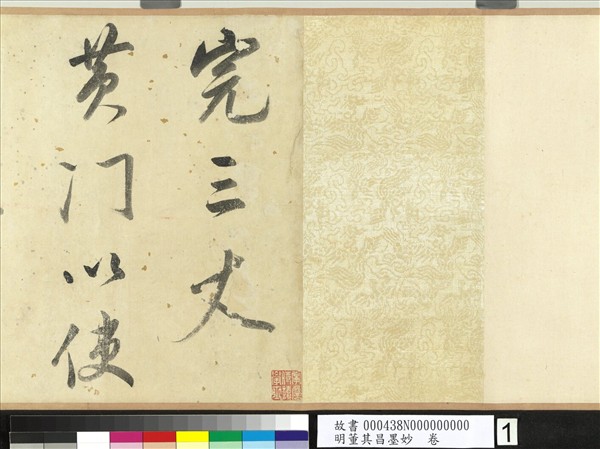 完三丈
黄门以使
故書 000438N000000000
明董其昌墨妙 卷
1